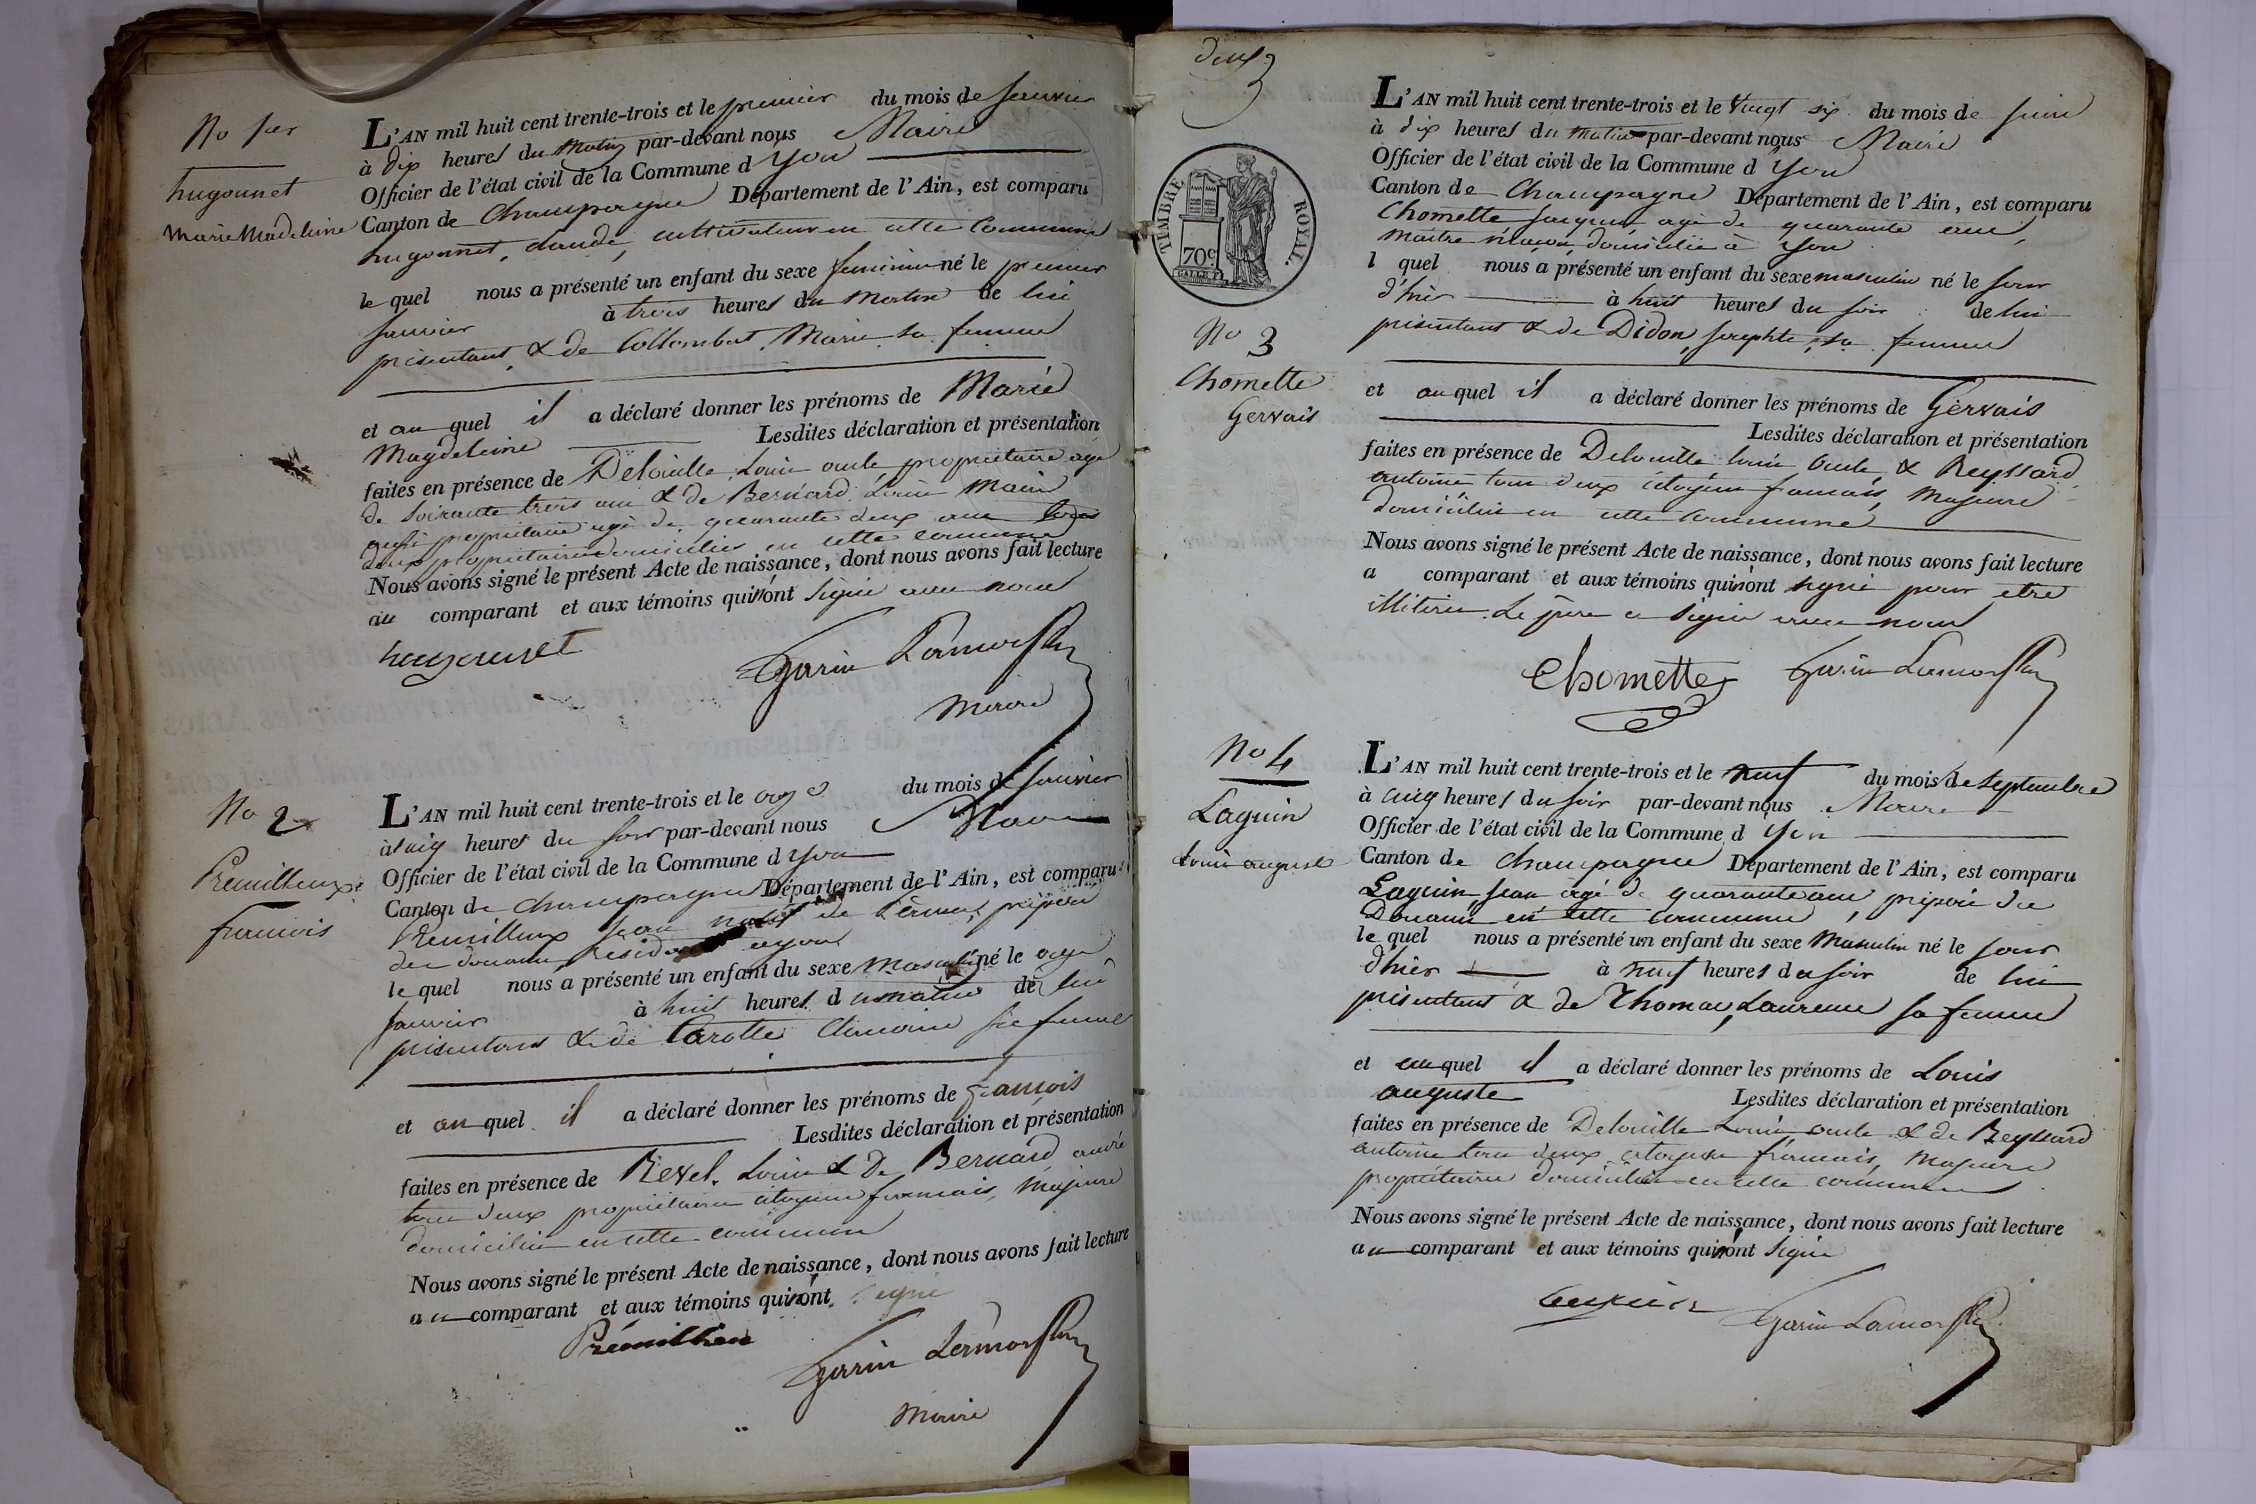 No 1er
hugonnet
Marie Madeleine
L'AN mil huit cent trente-trois et le premier du mois de Janvier
à dix heures du matin par-devant nous Maire
Officier de l'état civil de la Commune d yon
Canton de Champagne Département de l'Ain, est comparu
hugonnet, claude, cultivateur en cette Commune
le quel nous a présenté un enfant du sexe feminin né le premier
Janvier à trois heures du Matin de lui
présentant & de Collombat Marie sa femme
et au quel il a déclaré donner les prénoms de Marie
Magdeleine Lesdites déclaration et présentation
faites en présence de Delouille Louis oncle propriétaire agé
de soixante trois ans & de Bernard Louis Marin
aussi propriétaire agé de quarante deux ans tous
deux propriétaires domiciliés en cette commune
Nous avons signé le présent Acte de naissance, dont nous avons fait lecture
au comparant et aux témoins qui ont signé avec nous
hugonnet Garin Lamorflan
Maire
No 2
Premillieux
francois
L'AN mil huit cent trente-trois et le onze du mois de Janvier
à cinq heures du soir par-devant nous Maire
Officier de l'état civil de la Commune d yon
Canton de Champagne Département de l'Ain, est comparu
Premillieux Jean natif de préposé
des douanes résidant a yon
le quel nous a présenté un enfant du sexe Masculin né le onze
Janvier à huit heures du matin de lui
présentant & de Carotte Claudine sa femme
et au quel il a déclaré donner les prénoms de francois
Lesdites déclaration et présentation
faites en présence de Revel Louis & De Bernard andré
tous deux propriétaires citoyens francais, Majeurs
domiciliés en cette commune
Nous avons signé le présent Acte de naissance, dont nous avons fait lecture
au comparant et aux témoins qui n'ont signé
Prémillieu Garin Lamorflan
Maire
deux
3
TIMBRE ROYAL.
70c
No 3
Chomette
Gervais
L'AN mil huit cent trente-trois et le Vingt six du mois de Juin
à dix heures du matin par-devant nous Maire
Officier de l'état civil de la Commune d yon
Canton de Champagne Département de l'Ain, est comparu
Chomette Jacques, agé de quarante ans,
maitre maçon domicilié à yon
l quel nous a présenté un enfant du sexe masculin né le jour
d'hier à huit heures du soir de lui
présentant & de Didon, Josephte, sa femme
et au quel il a déclaré donner les prénoms de Gervais
Lesdites déclaration et présentation
faites en présence de Delouille Louis Oncle & Reyssard
antoine tous deux citoyens francais, Majeurs
domiciliés en cette commune
Nous avons signé le présent Acte de naissance, dont nous avons fait lecture
a comparant et aux témoins qui n'ont signé pour etre
illitérés. Le père a signé avec nous
Chomette Garin Lamorflan
No 4
Laguin
Louis auguste
L'AN mil huit cent trente-trois et le neuf du mois de Septembre
à cinq heures du soir par-devant nous Maire
Officier de l'état civil de la Commune d yon
Canton de Champagne Département de l'Ain, est comparu
Laguin, Jean agé de quarante ans, préposé des
Douanes en cette commune,
le quel nous a présenté un enfant du sexe Masculin né le jour
d'hier à neuf heures du soir de lui
présentant & de Thomas, Laurence sa femme
et au quel il a déclaré donner les prénoms de Louis
auguste Lesdites déclaration et présentation
faites en présence de Delouille Louis oncle & de Reyssard
antoine tous deux citoyens francais, Majeurs
propriétaires domiciliés en cette commune
Nous avons signé le présent Acte de naissance, dont nous avons fait lecture
au comparant et aux témoins qui n'ont signé
Garin Lamorflan